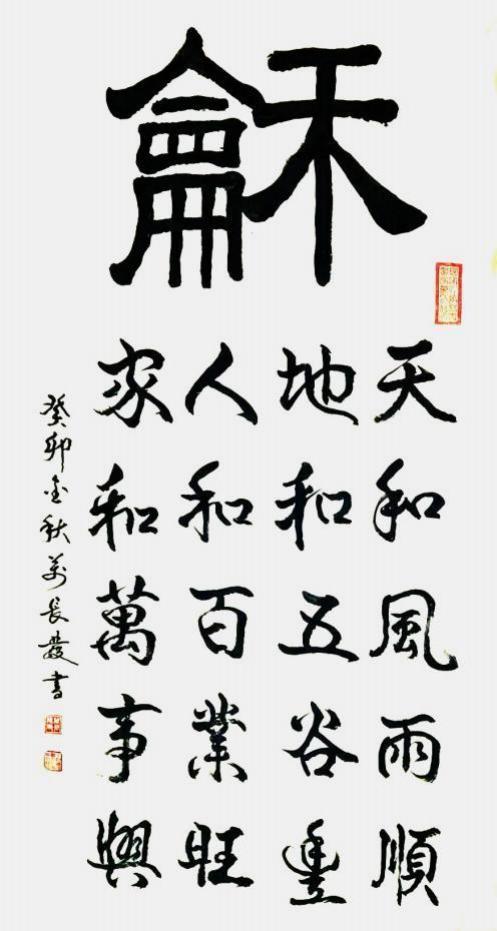 龢
天和風雨順
地和五谷豐
人和百業旺
家和萬事興
癸卯金秋萬長發書